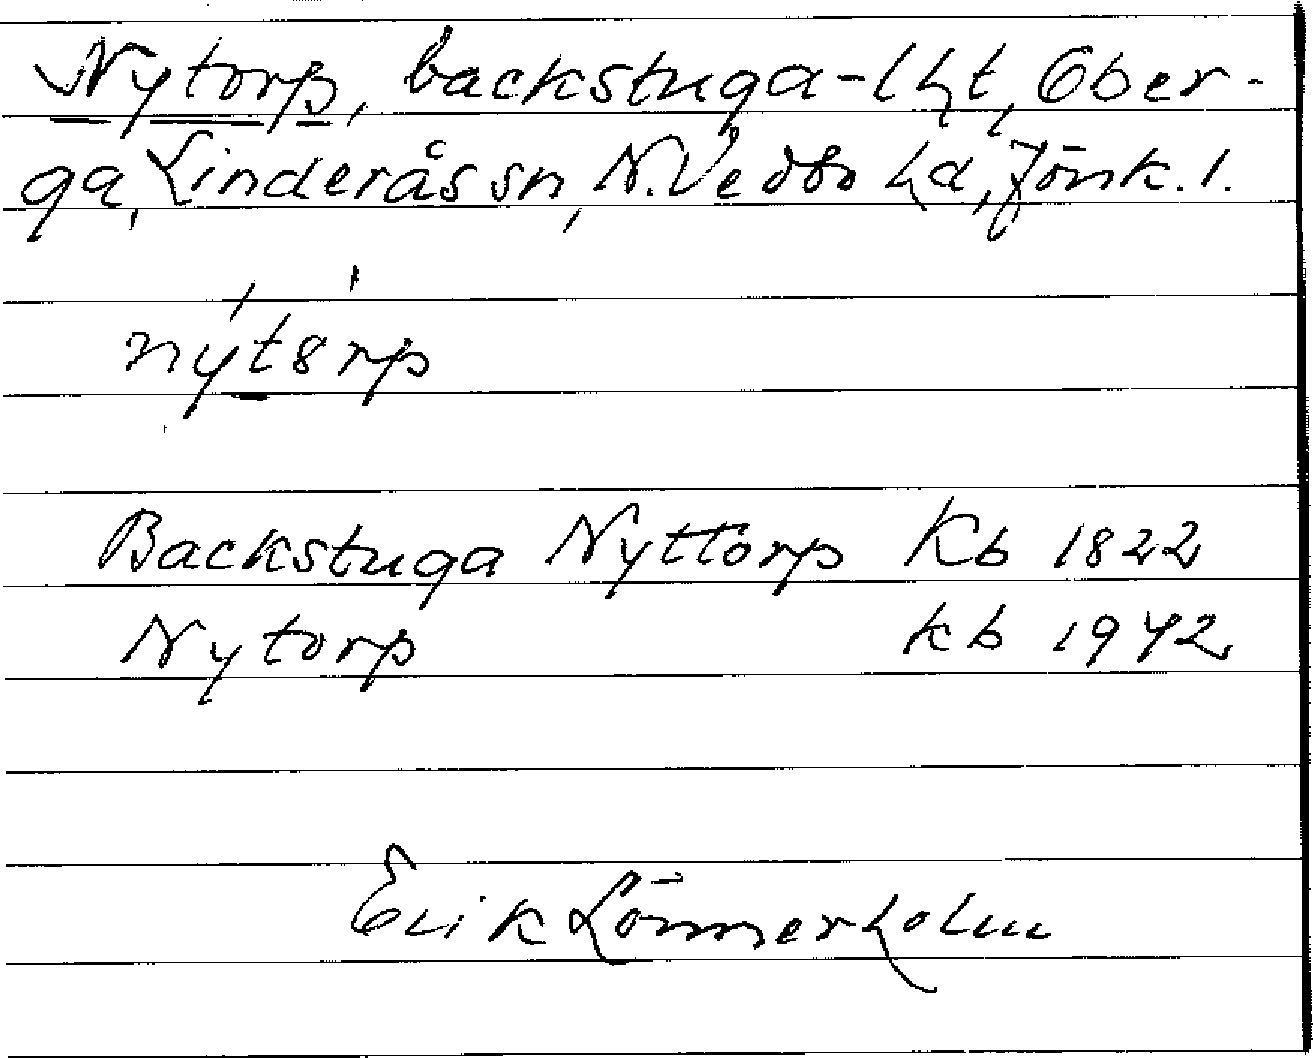 Nytorp, backstuga-lht, Ober-
ga, Linderås sn, N. Vedbo hd, Jönk. l.
nýt8rp
Backstuga Nyttorp Kb 1822
Nytorp kb 1942
Erik Lönnerholm